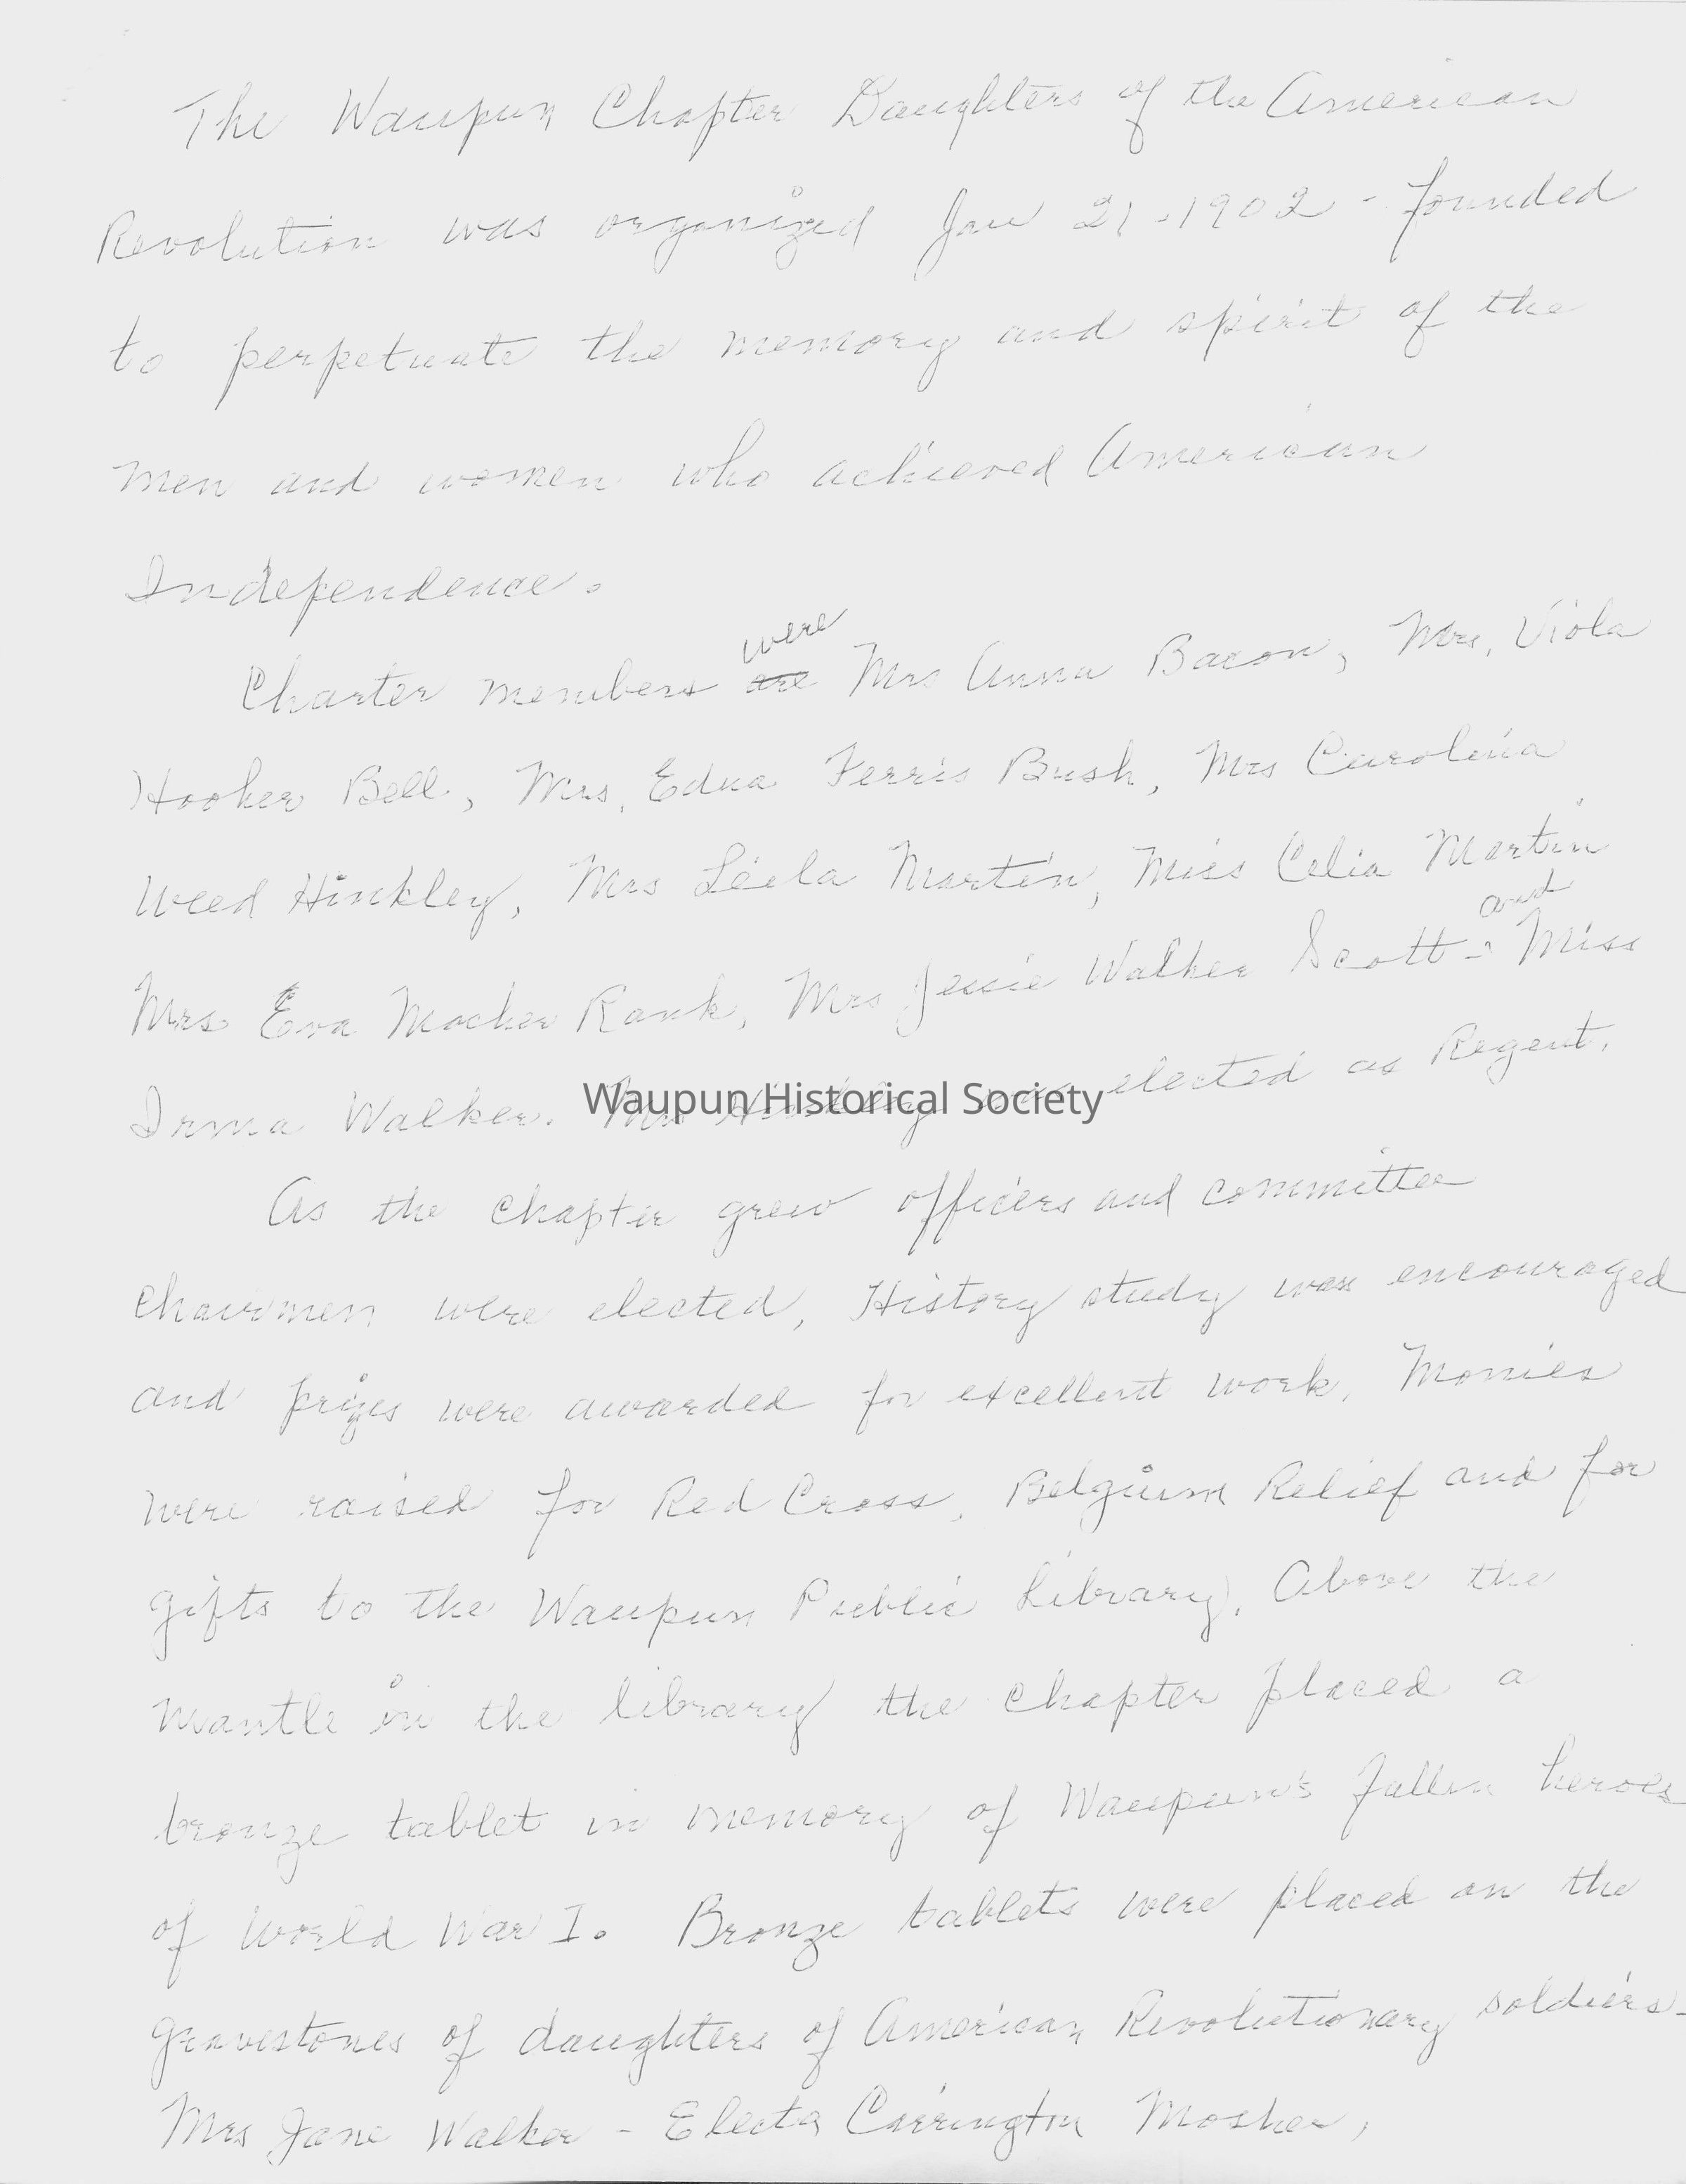 The Waupun Chapter Daughters of the American
Revolution was organized Jan 21-1902 - founded
to perpetuate the memory and spirit of the
men and women who achieved American
Independence.
were
Charter members are Mrs Anna Bacon, Mrs, Viola
Hooker Bell, Mrs, Edna Ferris Bush, Mrs Carolina
Weed Hinkley, Mrs Leila Martin, Miss Celia Martin
and
Mrs Eva Rank, Mrs Jessie Walker Scott - Miss
Irma Walker. Mrs Hinkley was elected as Regent.
Waupun Historical Society
As the chapter grew officers and committee
chairmen were elected, History study was encouraged
and prizes were awarded for excellent work. Monies
were raised for Red Cross, Belguim Relief and for
gifts to the Waupun Public Library. Above the
mantle in the library the chapter placed a
bronze tablet in memory of Waupun's fallen heroes
of World War I. Bronze tablets were placed on the
gravestones of daughters of American Revolutionary soldiers-
Mrs Jane Walker - Electa Carrington Mosher,